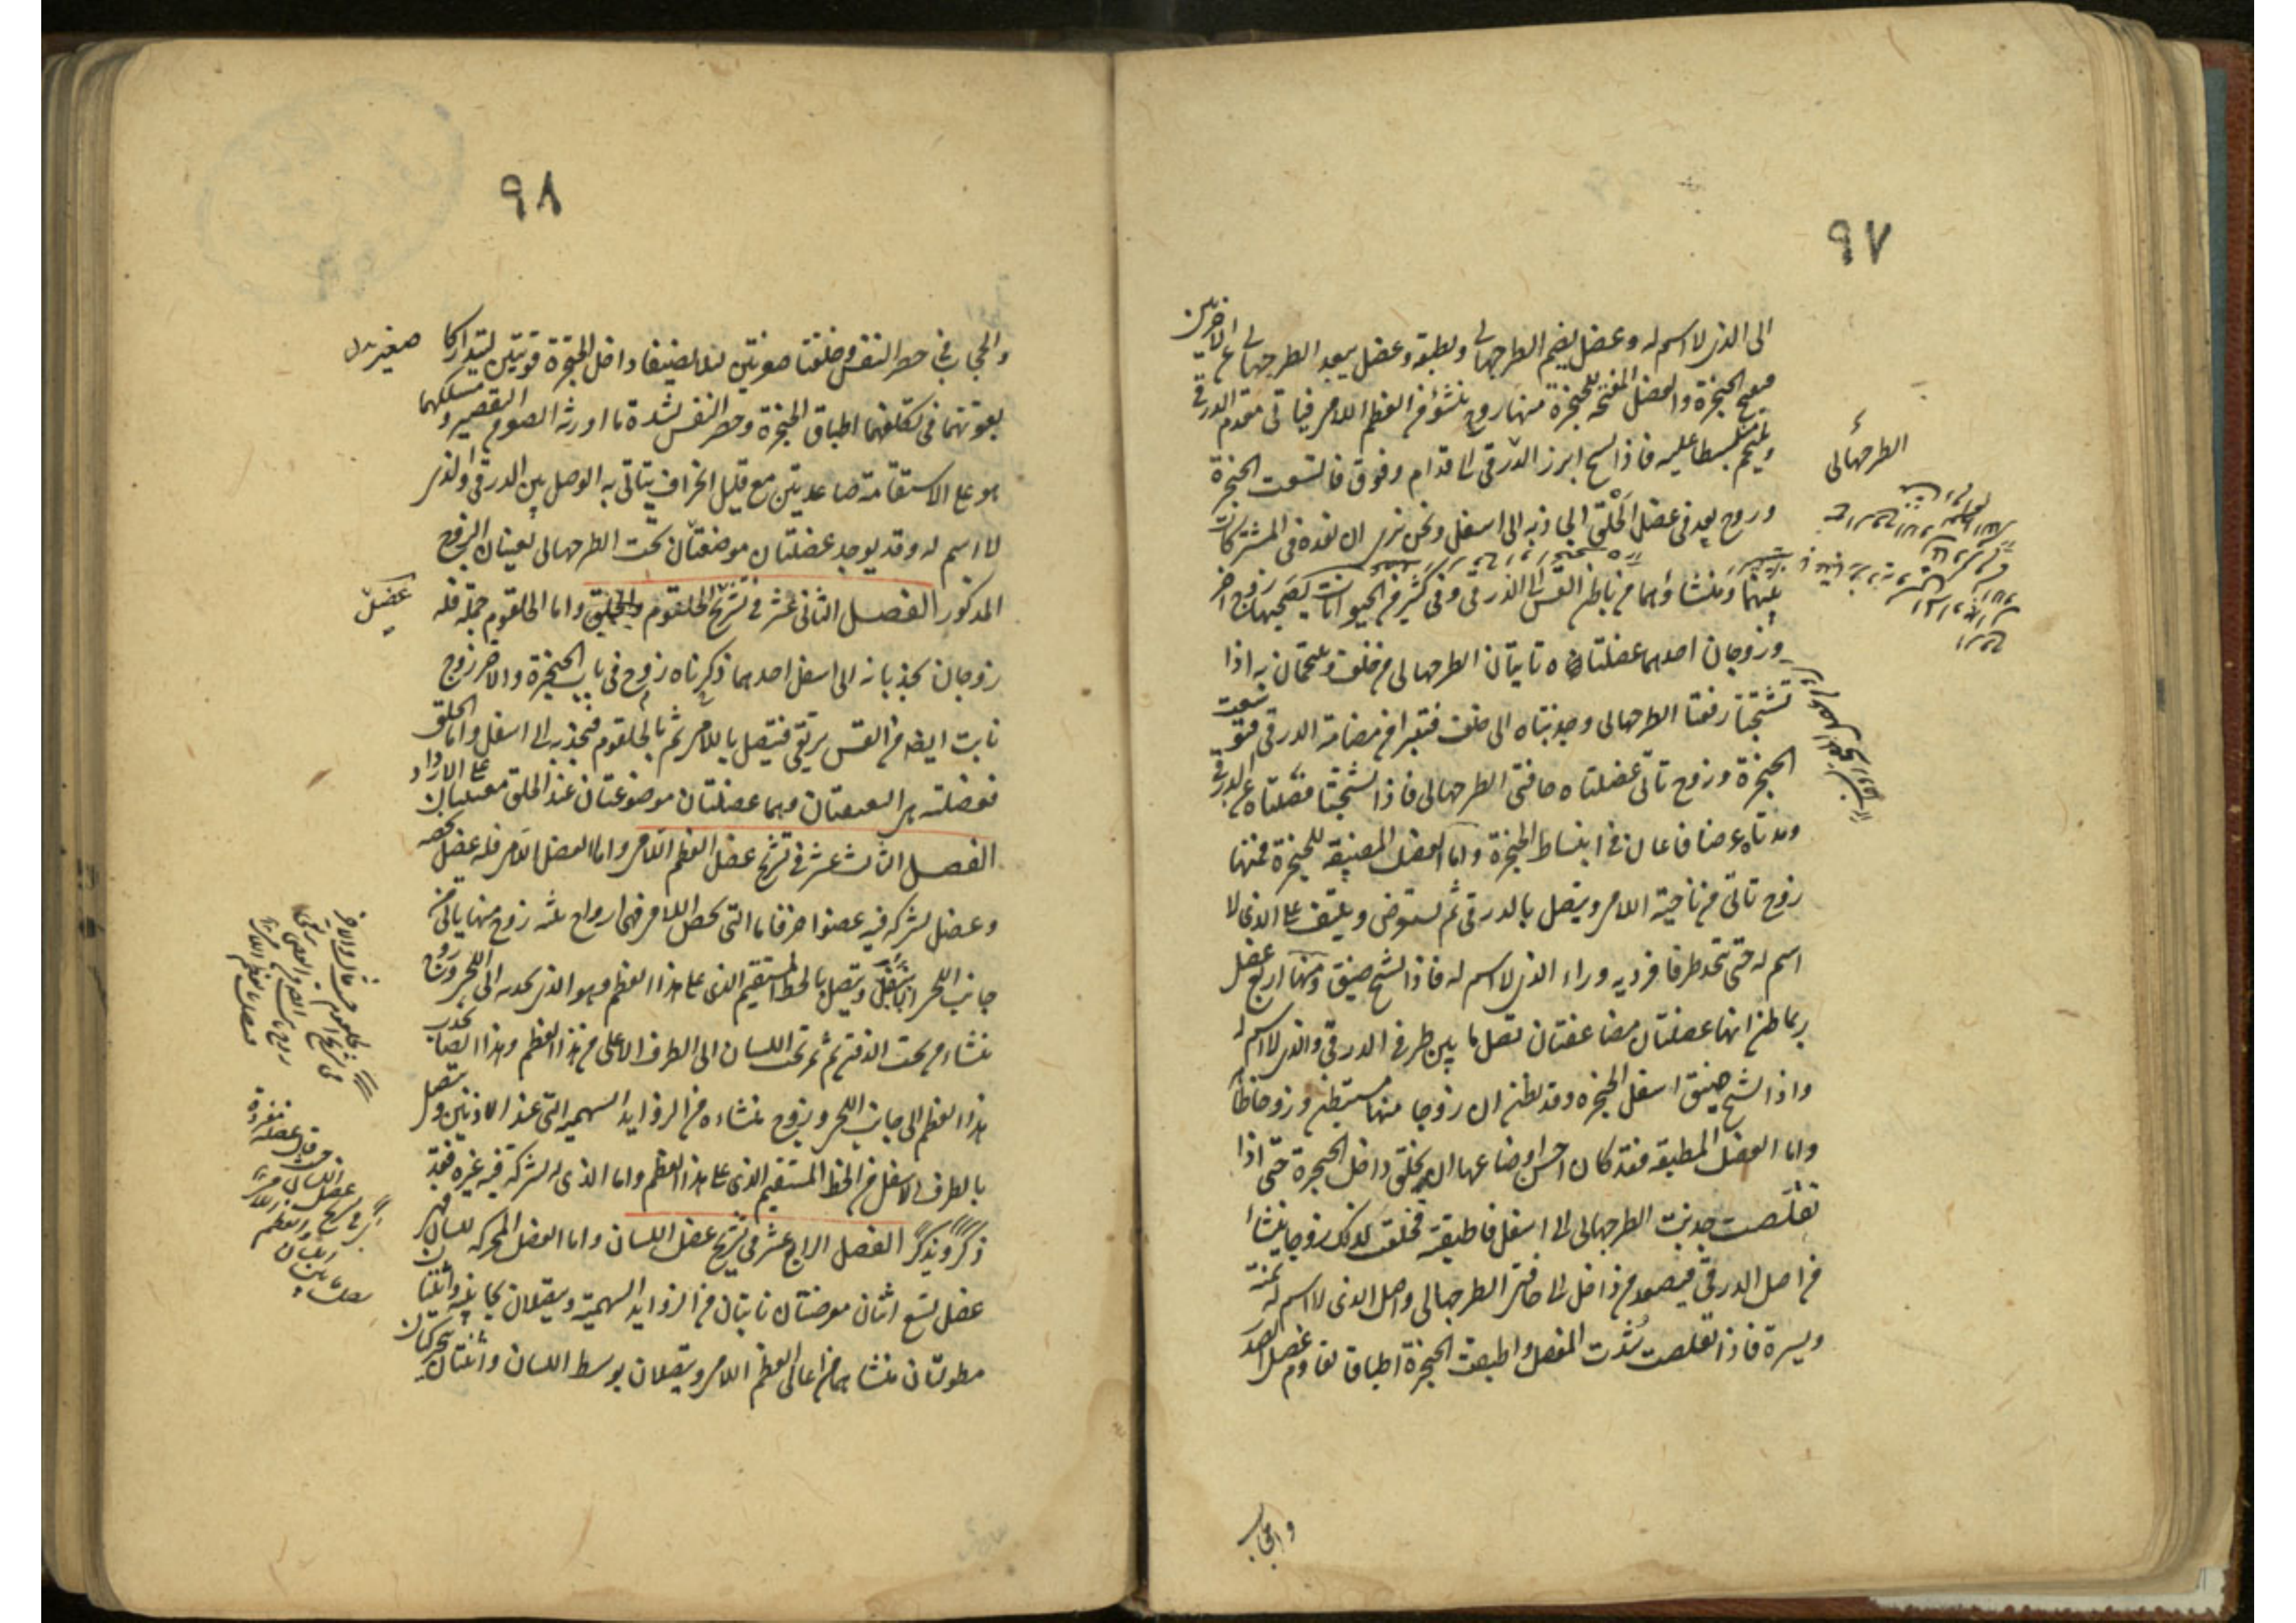 ٩٧
الى الذى لا اسم له وعضل يضم الطرجهالى ويطبقه وعضل يبعد الطرجهالى عن الاخريين
فيفتح الحنجرة والعضل المفتحه للحنجرة منها زوج ينشؤ من العظم اللامى فياتى مقدم الدرقى
ويلتحم منبسطا عليه فاذا تشنج ابرز الدرقى الى قدام وفوق فاتسعت الحنجرة
وزوج يعد فى عضل الحلق الجاذبه الى اسفل ونحن نرى ان نعده فى المشتركات
بينهما ومنشاؤهما من باطن القس الى الدرقى وفى كثير من الحيوانات يصحبهما زوج اخر
وزوجان احدهما عضلتاه تاتيان الطرجهالى من خلف ويلتحمان به اذا
تشنجتا رفعتا الطرجهالى وجذبتاه الى خلف فتبرا من مضامة الدرقى فتوسعت
الحنجرة وزوج تاتى عضلتاه حافتى الطرجهالى فاذا تشنجتا فصلتاه عن الدرقى
ومدتاه عرضا فاعان فى انبساط الحنجرة واما العضل المضيقه للحنجرة فمنها
زوج تاتى من ناحية اللامى ويتصل بالدرقى ثم يستعرض ويلتف على الذى لا
اسم له حتى يتحد طرفا فرديه وراء الذى لا اسم له فاذا تشنج ضيق ومنها اربع عضل
ربما ظن انها عضلتان مضاعفتان تصل ما بين طرفى الدرقى والذى لا اسم له
واذا تشنج ضيق اسفل الحنجره وقد يظن ان زوجا منها مستبطن وزوجا ظاهر
واما العضل المطبقه فقد كان احسن اوضاعها ان يخلق داخل الحنجرة حتى اذا
تقلصت جذبت الطرجهالى الى اسفل فاطبقته فخلقت لذلك زوجا ينشا
من اصل الدرقى فيصعد من داخل الى حافتى الطرجهالى واصل الذى لا اسم له يمنة
ويسرة فاذا تقلصت شدت المفصل واطبقت الحنجرة اطباقا يقاوم عضل الصدر
والحجاب
الطرجهالى
٩٨
والحجاب فى حصر النفس وخلقتا صغيرتين لئلا يضيقا داخل الحنجرة قويتين ليتداركا
بقوتهما فى تكلفهما اطباق الحنجرة وحصر النفس بشدة ما اورثه الصغر من التقصير ومسلكهما
هو على الاستقامة صاعدتين مع قليل انحراف يتاتى به الوصل بين الدرقى والذى
لا اسم له وقد يوجد عضلتان موضعتان تحت الطرجهالى يعينان الزوج
المذكور الفصل الثانى عشر فى تشريح الحلقوم والحلق واما الحلقوم جملة فله
زوجان يجذبانه الى اسفل احدهما ذكرناه زوج فى باب الحنجرة والاخر زوج
نابت ايضا من القس يرتقى فيتصل باللامى ثم بالحلقوم فيجذبه الى اسفل واما الحلق
فعضلته هى النغنغتان وهما عضلتان موضوعتان عند الحلق معينتان على الازدراد
الفصل الثالث عشر فى تشريح عضل العظم اللامى واما العضل اللامى فله عضل يخصه
وعضل يشركه فيه عضو اخر فاما التى يخص اللامى فهى ازواج ثلثه زوج منها ياتى من
جانبى اللحى اسفل ويتصل بالخط المستقيم الذى على هذا العظم وهو الذى يجذبه الى اللحى وزوج
ينشاء من تحت الذقن ثم يمر تحت اللسان الى الطرف الاعلى من هذا العظم وهذا ايضا يجذب
هذا العظم الى جانب اللحى وزوج منشاءه من الزوايد السهمية التى عند الاذنين ويتصل
بالطرف الاسفل من الخط المستقيم الذى على هذا العظم واما الذى يشركه فيه غيره فقد
ذكر ويذكر الفصل الرابع عشر فى تشريح عضل اللسان واما العضل المحركه للسان فهى
عضل تسع اثنان معرضتان تاتيان من الزوايد السهمية ويتصلان بجانبيه واثنتان
مطولتان منشاهما من اعالى العظم اللامى ويتصلان بوسط اللسان واثنتان يحركان
عضل